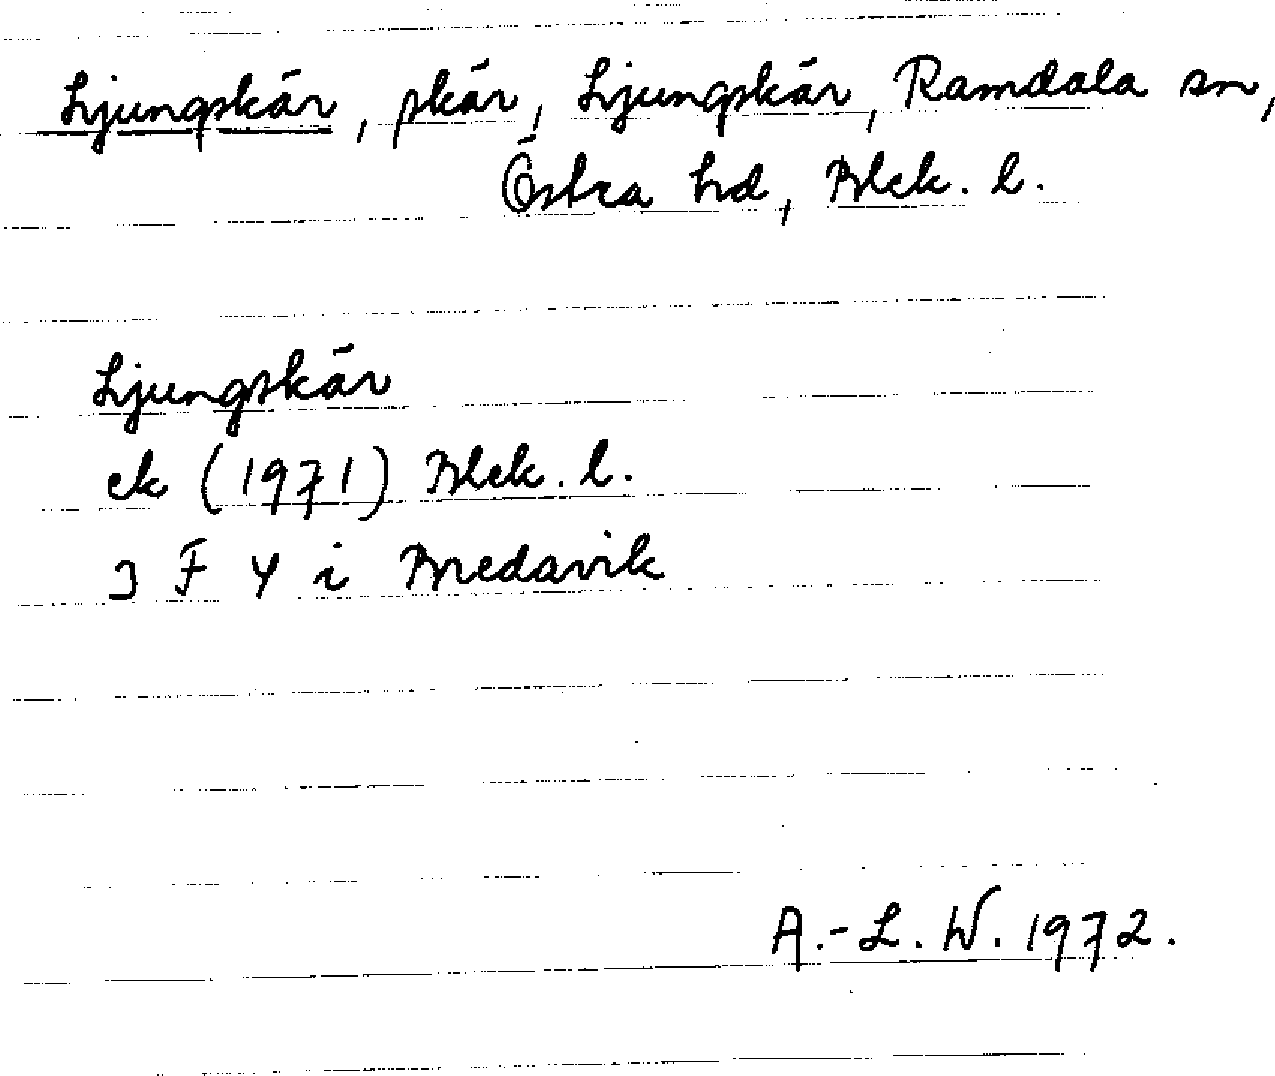 Ljungskär, skär, Ljungskär, Ramdala sn,
Östra hd, Blek. l.
Ljungskär
ek (1971) Blek. l.
3 F Y i Bredavik
A.-L. W. 1972.